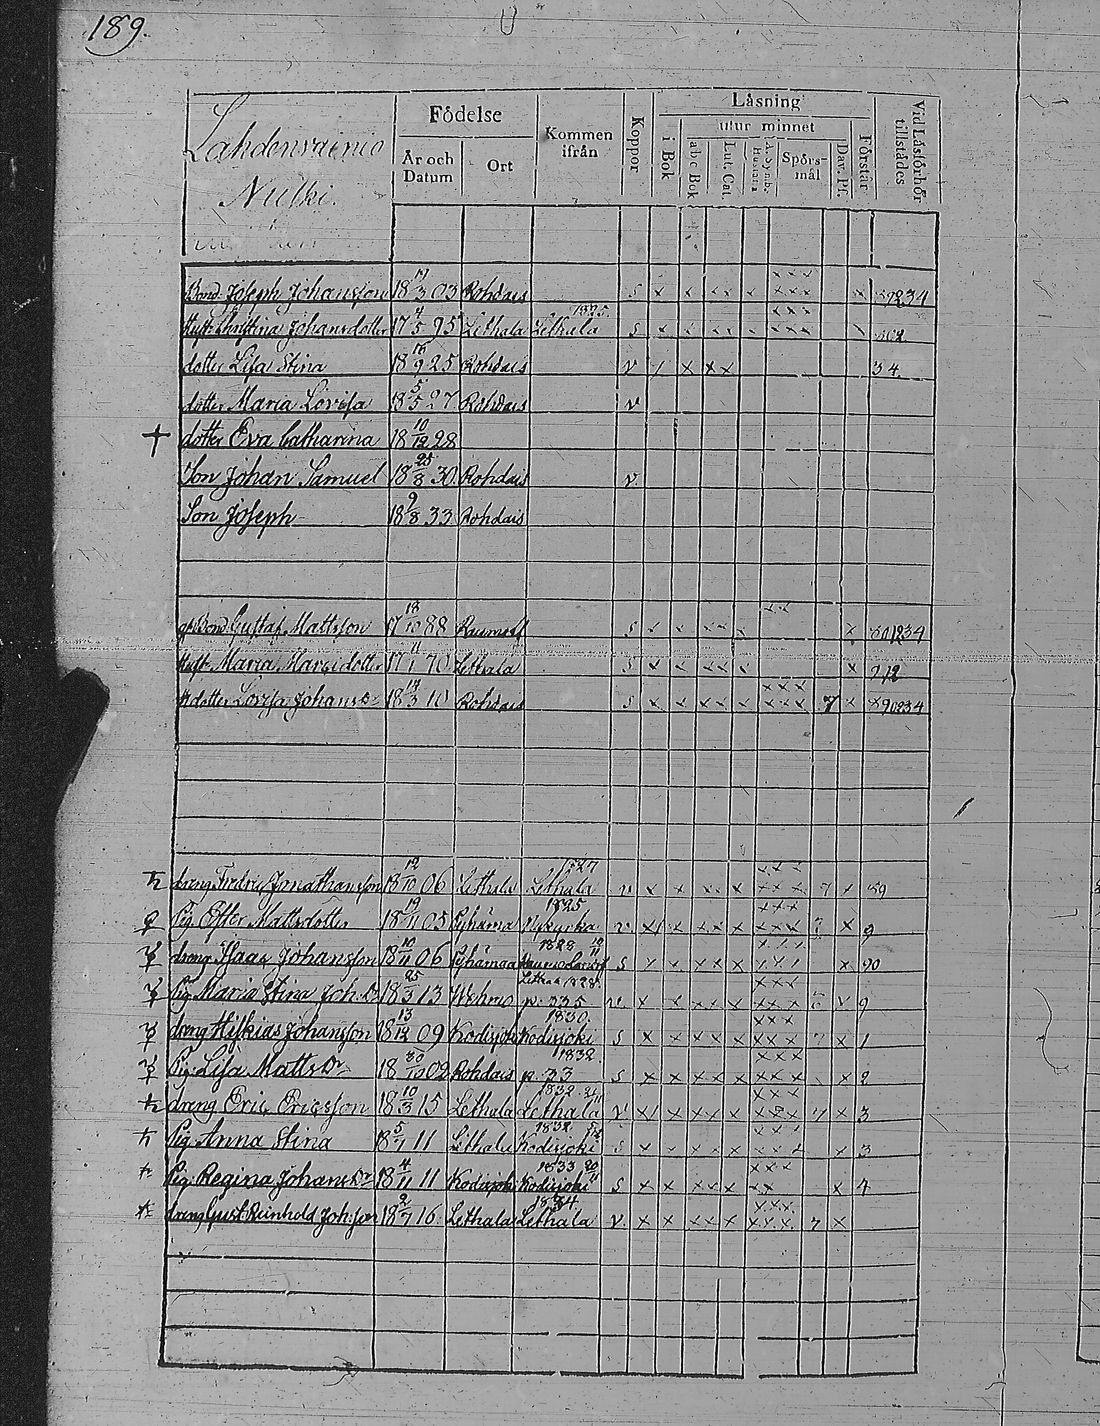 189.
Lahdenvainio
Nulki.
Födelse
År och Datum
Ort
Kommen ifrån
Koppor
Läsning
i Bok
utur minnet
abc Bok
Lut. Cat.
Spörs-mål
Dav. Ps.
Förstår
Vid Läsförhör tillstädes
Bond. Joseph Johansson 18 17/3 03 Rohdais s x x x x x x x x x x x x
Hust. Christina Johansdotter 17 4/5 95 Lethala Lethala 1825 s x x x x x x x x x x x
dotter Lisa Stina 18 18/9 25 Rohdais v / x x x 34
dotter Maria Lovisa 18 5/5 27 Rohdais v
† dotter Eva Catharina 18 10/12 28
Son Johan Samuel 18 25/8 30 Rohdais v
Son Joseph 18 9/8 33 Rohdais
Gustaf Mattsson 17 18/10 88 s x x x x x x x
Hust. Maria Marsidotter 17 11/1 70 Lethala s x x x x x x
Lovisa Johans Dr 18 14/3 10 Rohdais s x x x x x x x x x x x 7 x
dreng Fredric Jonathansson 18 12/10 06 Lethala Lethala 1827 v x x x x x x x x x x x 7 x 89
Pig. Ester Mattsdotter 18 19/11 05 Pyhäma Nykyrka 1825 v x x x x x x x x x x x x 9
dreng Isaac Johansson 18 10/11 06 Pyhämaa 1828 s x x x x x x x x x x x x 90
Pig. Maria Stina Joh. Dr 18 25/3 13 Wehmo Lethala 1828 p. 235 x x x x x x x x x x x 9
dreng Hiskias Johansson 18 13/12 09 Kodisjoki Kodisjoki 1830. s x x x x x x x x x x x 7 x 1
Pig. Lisa Matts Dr 18 30/10 02 Rohdais 1832 p. 33 s x x x x x x x x x x x x 2
dreng Eric Ericsson 18 10/3 15 Lethala Lethala 1832 v x x x x x x x x x x x 7 x 3
Pig. Anna Stina 18 5/7 11 Lethala Kodisjoki 1832 s x x x x x x x x x x x x 3
Pig. Regina Johans Dr 18 4/11 11 Kodisjoki Kodisjoki 1833 20/11 s x x x x x x x x x x x 4
dreng Gust. Reinhold Joh:son 18 2/7 16 Lethala Lethala 1834 v. x x x x x x x x x x x 7 x